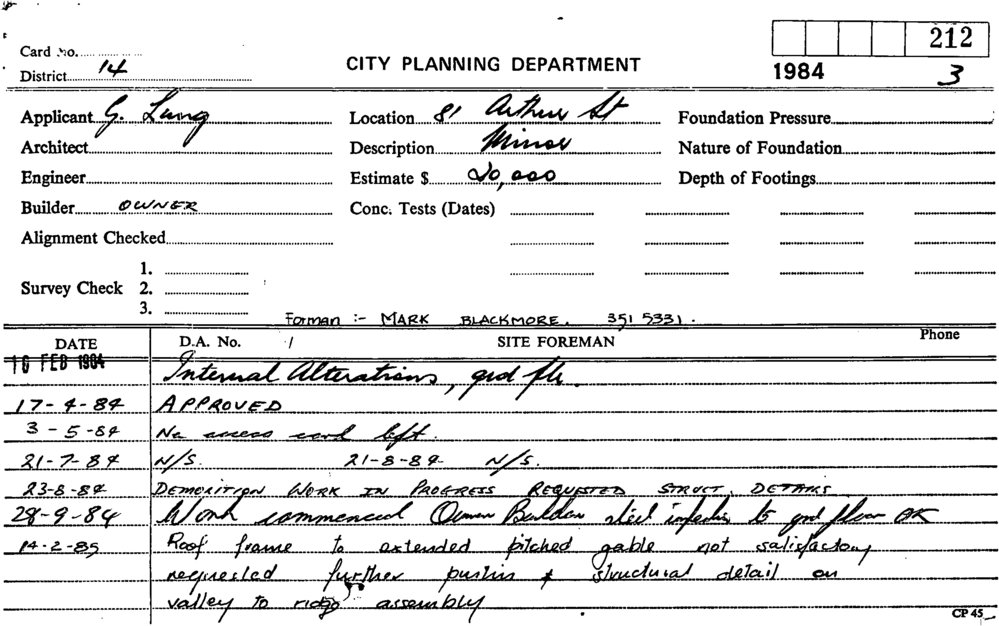 212
Card No.
District 14
CITY PLANNING DEPARTMENT
1984 3
Applicant G. Lung Location 81 Arthur St Foundation Pressure
Architect Description Minor Nature of Foundation
Engineer Estimate $ 20,000 Depth of Footings
Builder OWNER Conc. Tests (Dates)
Alignment Checked
1.
Survey Check 2.
3.
Forman :- MARK BLACKMORE. 351 5331.
DATE D.A. No. / SITE FOREMAN Phone
16 FEB 1984 Internal Alterations, grd flr.
17-4-84 APPROVED
3-5-84 No access card left.
21-7-84 N/S. 21-8-84 N/S.
23-8-84 DEMOLITION WORK IN PROGRESS REQUESTED STRUCT. DETAILS
28-9-84 Work commenced Owner Builder steel to grd floor OK
14-2-85 Roof frame to extended pitched gable not satisfactory
requested further & structural detail on
valley to ridge assembly
CP 45